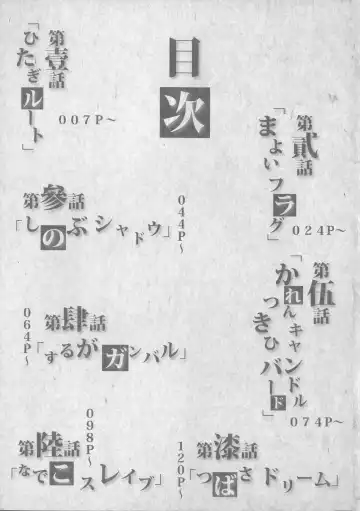 目次
第壹話
「ひたぎルート」
007P～
第貳話
「まよいフラグ」
024P～
第參話
「しのぶシャドウ」
044P～
第肆話
「するがガンバル」
064P～
第伍話
「かれんキャンドル
つきひバード」
074P～
第陸話
「なでこスレイブ」
098P～
第漆話
「つばさドリーム」
120P～